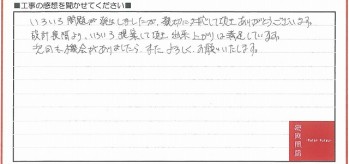 ■工事の感想を聞かせてください■
いろいろ問題が発生しましたが、親切に対応して頂きありがとうございます。
設計長屋より、いろいろ提案して頂き出来上がりは満足しています。
次回も機会がありましたら、またよろしくお願いいたします。